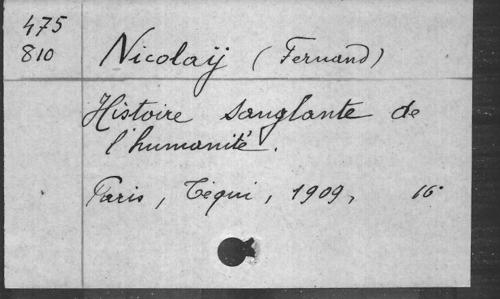 475
810
Nicolaÿ (Fernand)
Histoire sanglante de
l'humanité.
Paris, Téqui, 1909, 16°